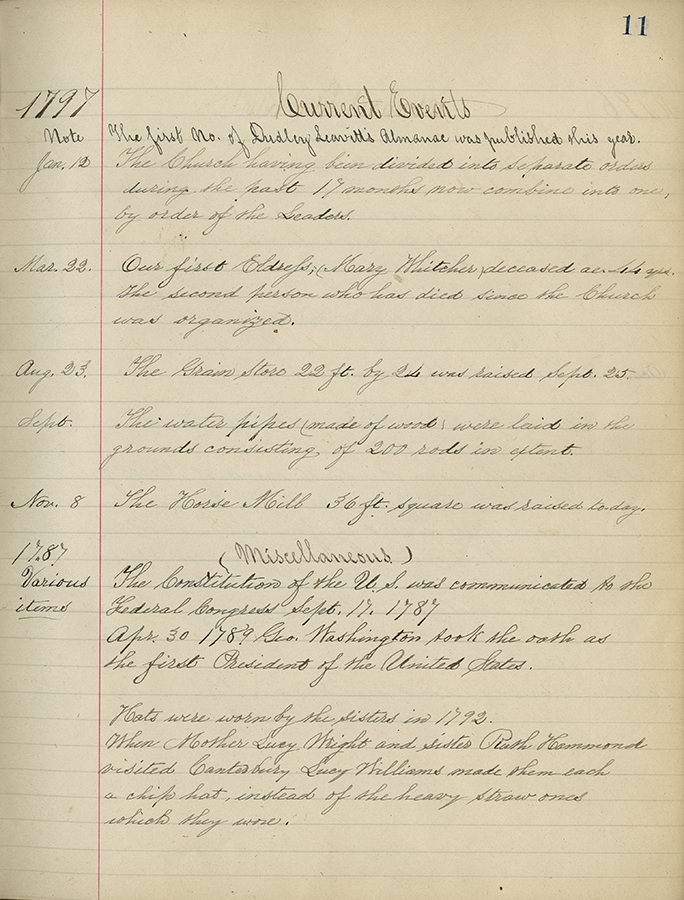 11
1797 Current Events
Note The first No. of Dudley Leavitt's Almanac was published this year.
Jan. 12 The Church having been divided into separate orders
during the past 17 months now combine into one,
by order of the Leaders.
Mar. 22. Our first Eldress, (Mary Whitcher) deceased ae 44 yrs.
The second person who has died since the Church
was organized.
Aug. 23. The Grain Store 22 ft. by 24 was raised Sept. 25.
Sept. The water pipes (made of wood) were laid in the
grounds consisting of 200 rods in extent.
Nov. 8 The Horse Mill 36 ft. square was raised today.
1787 (Miscellaneous)
Various The Constitution of the U. S. was communicated to the
items Federal Congress Sept. 17. 1787
Apr. 30 1789 Geo. Washington took the oath as
the first President of the United States.
Hats were worn by the sisters in 1792.
When Mother Lucy Wright and sister Ruth Hammond
visited Canterbury Lucy Williams made them each
a chip hat, instead of the heavy straw ones
which they wore.